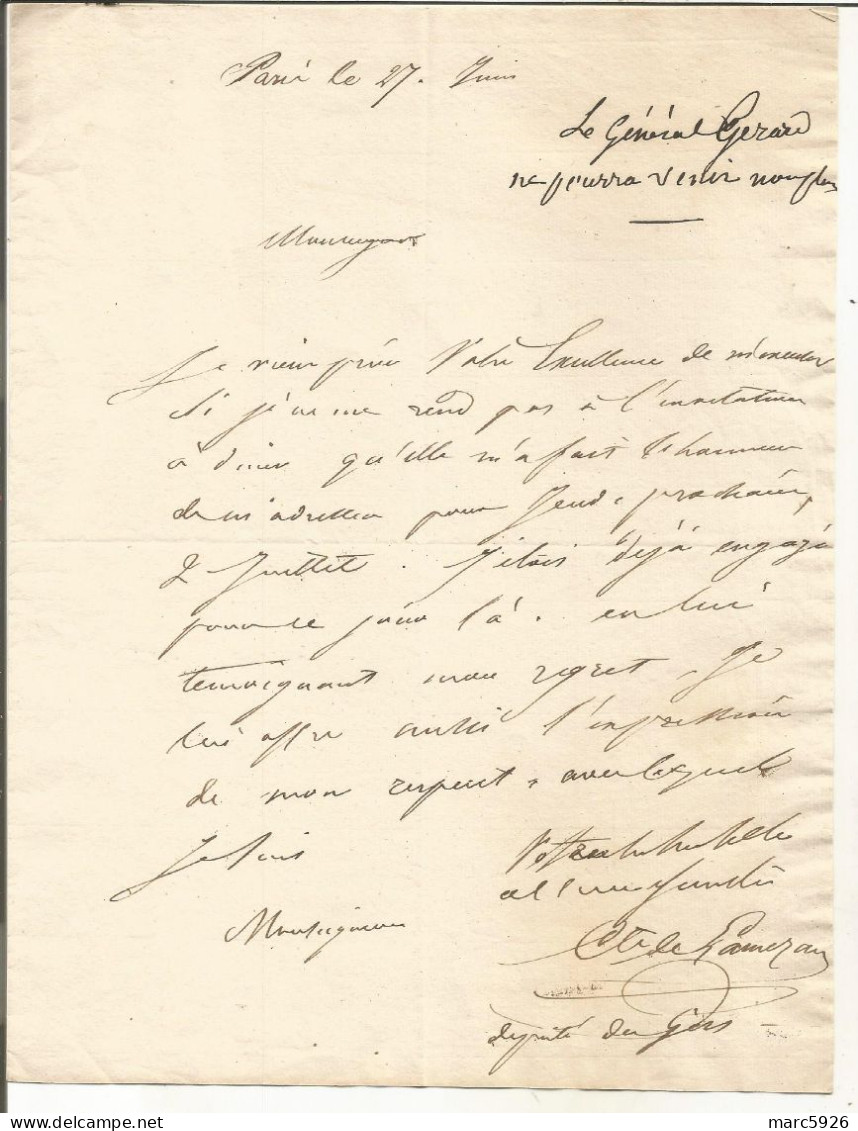 Paris le 27. Juin
Le Général Gerard
ne pourra venir non plus
Monseigneur
Je viens prier Votre Excellence de m'excuser
si je ne me rend pas à l'invitation
à diner qu'elle m'a fait l'honneur
de m'adresser pour Jeudi prochain,
2 Juillet. J'etois déjà engagé
pour ce jour là. en lui
temoignant mon regret, Je
lui offre aussi l'expression
de mon respect, avec lequel
Je suis
Votre très humble
et
Monseigneur
Cte de
député du Gers
delcampe.net
marc5926